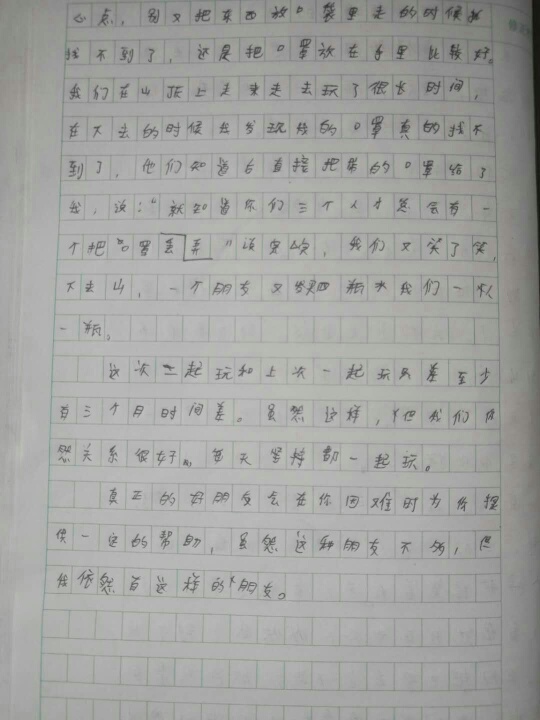 心点，别又把东西放口袋里走的时候找
找不到了，还是把口罩放在手里比较好。
我们在山顶上走来走去玩了很长时间，
在下去的时候我发现我的口罩真的找不
到了，他们知道后直接把带的口罩给了
我，说："就知道你们三个人才总会有一
个把"口罩丢弄"，我们又笑了笑，
下去山，一个朋友又发现四瓶水我们一人
一瓶。
这次一起玩和上次一起玩只差至少
有三个月时间差。虽然这样，但我们仍
然关系很好，每天坚持都一起玩。
真正的好朋友会在你困难时为你提
供一定的帮助，虽然这种朋友不多，但
我依然有这样的朋友。